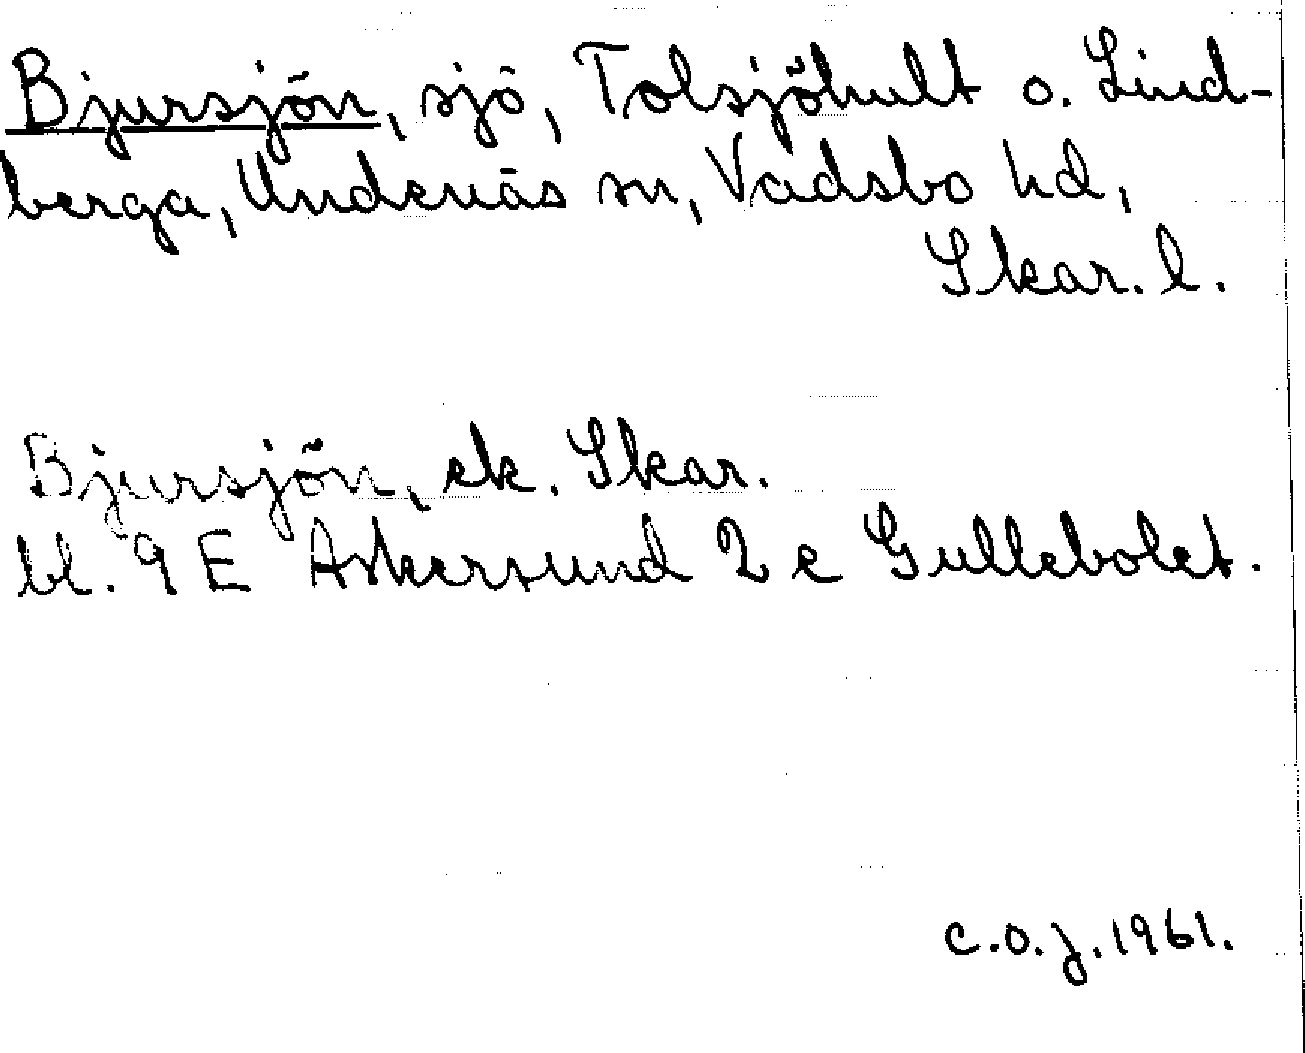 Bjursjön, sjö, Tolsjöhult o. Lind-
berga, Undenäs sn, Vadsbo hd,
Skar. l.
Bjursjön, ek. Skar.
bl. 9 E Askersund 2 e Gullebolet.
C.O.J. 1961.